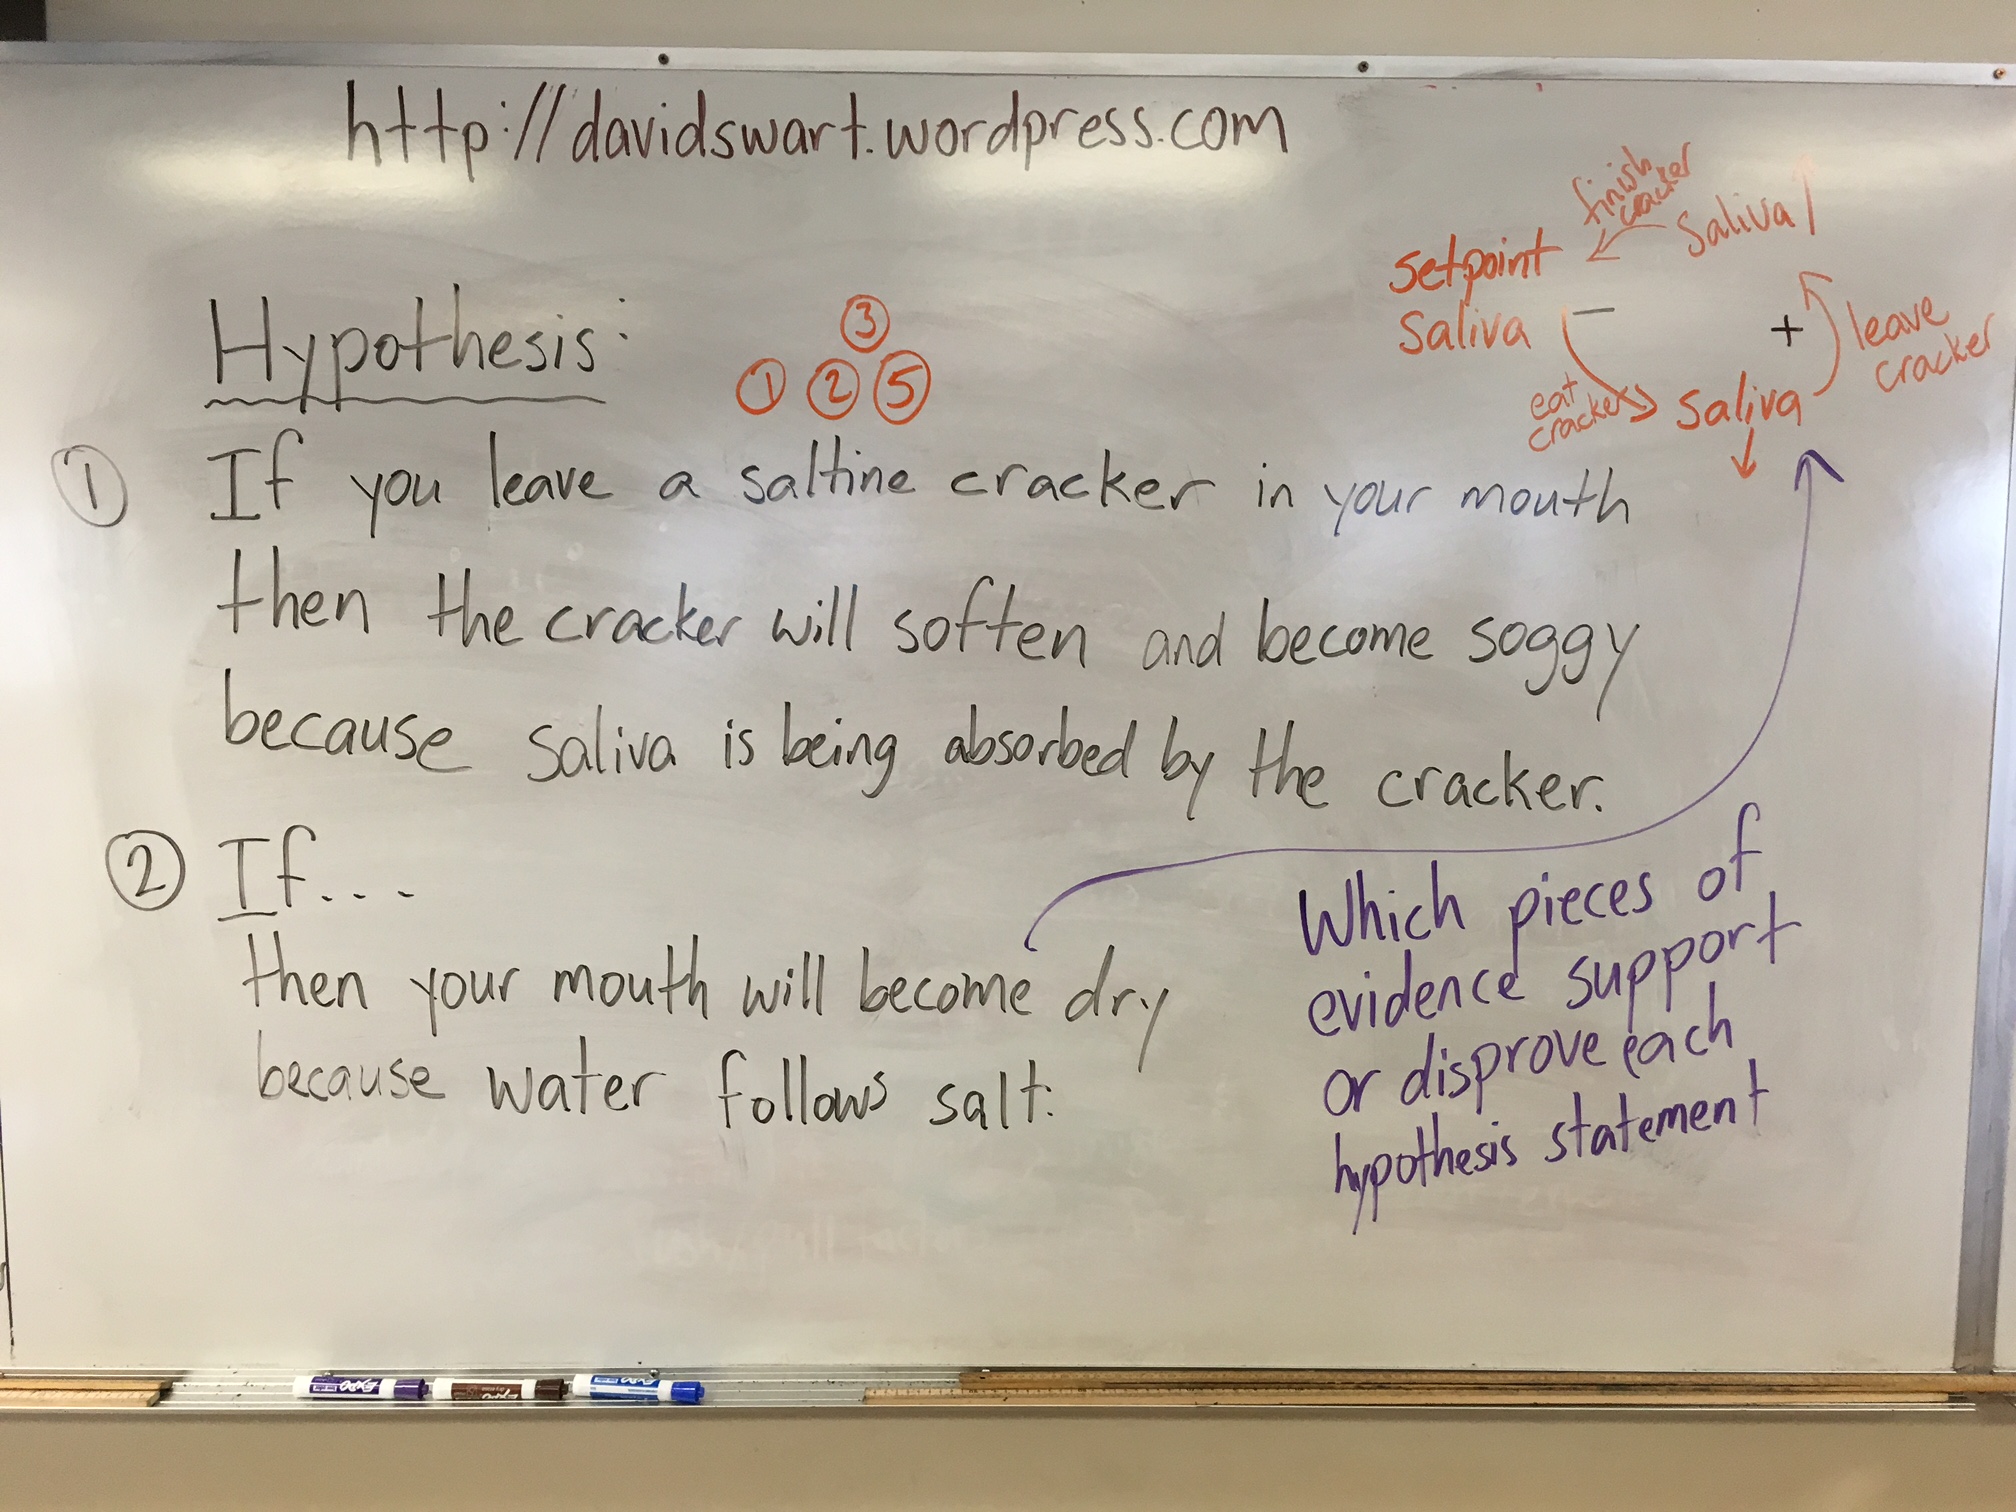 http://davidswart.wordpress.com
finish
cracker
Saliva
setpoint
Saliva
−
+
leave
cracker
eat
cracker
Saliva
Hypothesis:
3
1 2 5
1 If you leave a saltine cracker in your mouth
then the cracker will soften and become soggy
because saliva is being absorbed by the cracker.
2 If...
then your mouth will become dry
because water follows salt.
Which pieces of
evidence support
or disprove each
hypothesis statement
EXPO
EXPO
EXPO